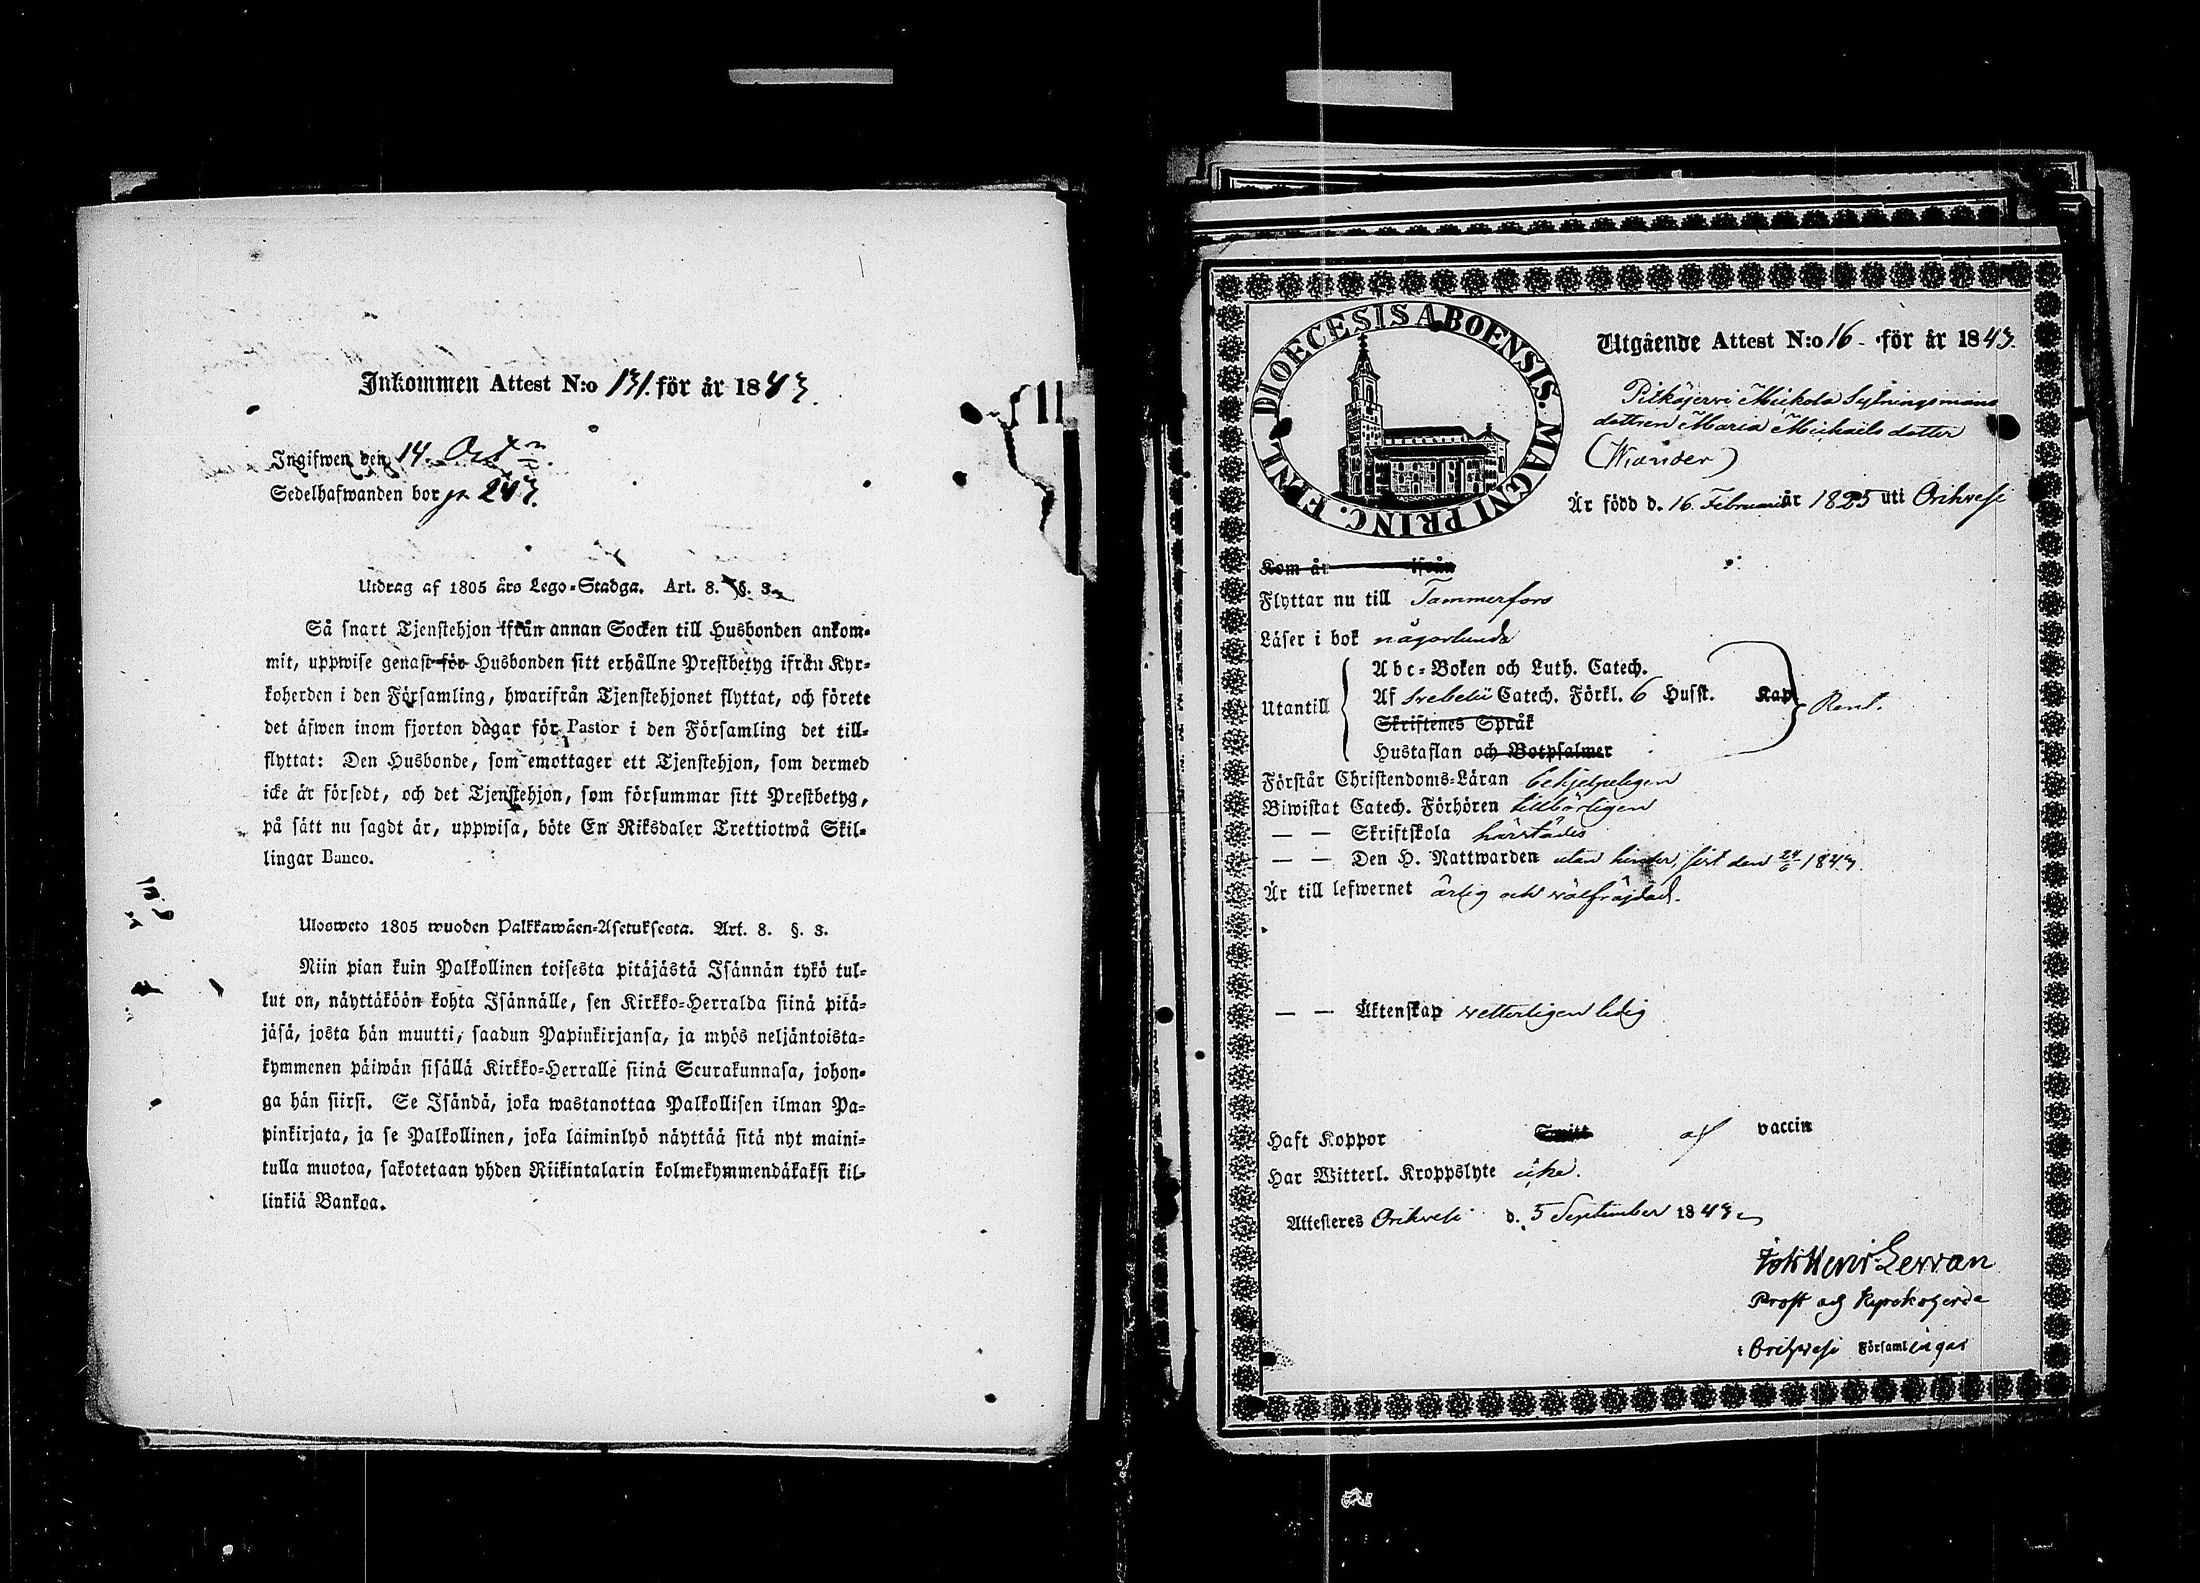 Inkommen Attest N:o 131. för år 1843.
Ingifwen den 14. Oct
Sedelhafwanden bor p. 243.
Utdrag af 1805 års Lego-Stadga. Art. 8. §. 3.
Så snart Tjenstehjon ifrån annan Socken till Husbonden ankom-
mit, uppwise genast för Husbonden sitt erhållne Prestbetyg ifrån Kyr-
koherden i den Församling, hwarifrån Tjenstehjonet flyttat, och förete
det äfwen inom fjorton dagar för Pastor i den Församling det till-
flyttat: Den Husbonde, som emottager ett Tjenstehjon, som dermed
icke är försedt, och det Tjenstehjon, som försummar sitt Prestbetyg,
på sätt nu sagdt är, uppwisa, böte En Riksdaler Trettiotwå Skil-
lingar Banco.
Ulosweto 1805 wuoden Palkkawäen-Asetuksesta. Art. 8. §. 3.
Niin pian kuin Palkollinen toisesta pitäjästä Isännän tykö tul-
lut on, näyttäköön kohta Isännälle, sen Kirkko-Herralda siinä pitä-
jäsä, josta hän muutti, saadun Papinkirjansa, ja myös neljäntoista-
kymmenen päiwän sisällä Kirkko-Herralle siinä Seurakunnasa, johon-
ga hän siirsi. Se Isändä, joka wastanottaa Palkollisen ilman Pa-
pinkirjata, ja se Palkollinen, joka laiminlyö näyttää sitä nyt maini-
tulla muotoa, sakotetaan yhden Riikintalarin kolmekymmendäkaksi kil-
linkiä Bankoa.
DIOECESIS ABOENSIS. MAGNI PRINC. FINL.
Utgående Attest N:o 16 för år 1843.
Pitkäjervi Mickola Sytningsmans
dottren Maria Michaelsdotter
(Wiander)
Är född d. 16. Februarii år 1825 uti Orihvesi
Kom år ifrån
Flyttar nu till Tammerfors
Läser i bok någorlunda
Abc-Boken och Luth. Catech.
Utantill Af Svebelii Catech. Förkl. 6 Husst. Kap Rent.
Skriftenes Språk
Hustaflan och Botpsalmer
Förstår Christendoms-Läran behjelpeligen
Biwistat Catech. Förhören tillbörligen
— — Skriftskola härstädes
— — Den H. Nattwarden utan hinder, sist den 24/6 1843.
Är till lefwernet ärlig och välfräjdad.
— — Äktenskap vetterligen ledig
Haft Koppor Smitt af vaccin
Har Witterl. Kroppslyte icke.
Attesteres Orihvesi d. 5 September 1843
Henr Lerran
Prost och Kyrckoherde
i Orihvesi Församlingar